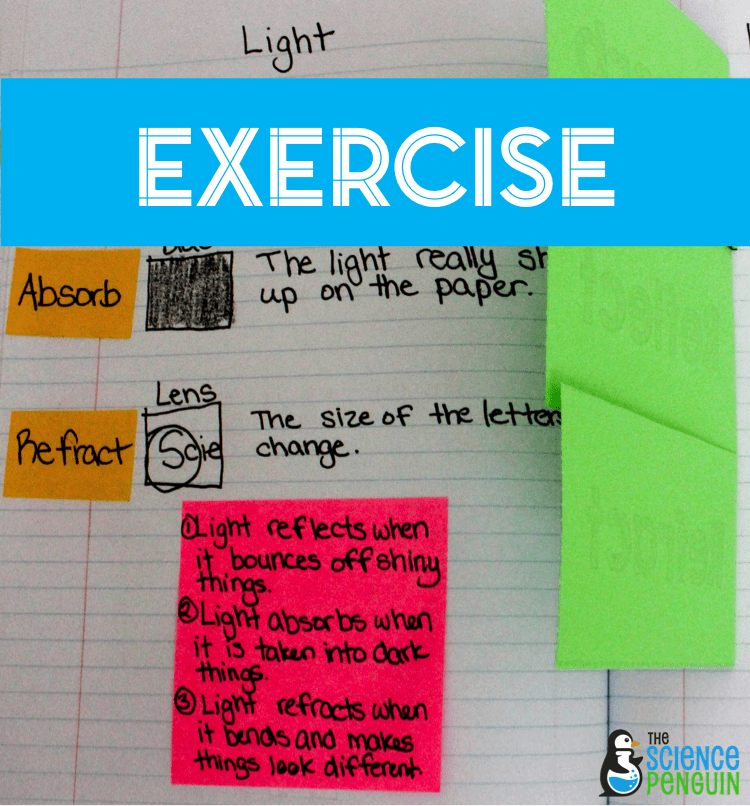 Light
EXERCISE
Absorb
The light really sh
up on the paper.
Lens
Refract
Scie
The size of the letters
change.
① Light reflects when
it bounces off shiny
things.
② Light absorbs when
it is taken into dark
things.
③ Light refracts when
it bends and makes
things look different.
Reflect
Refract
THE
SCIENCE
PENGUIN